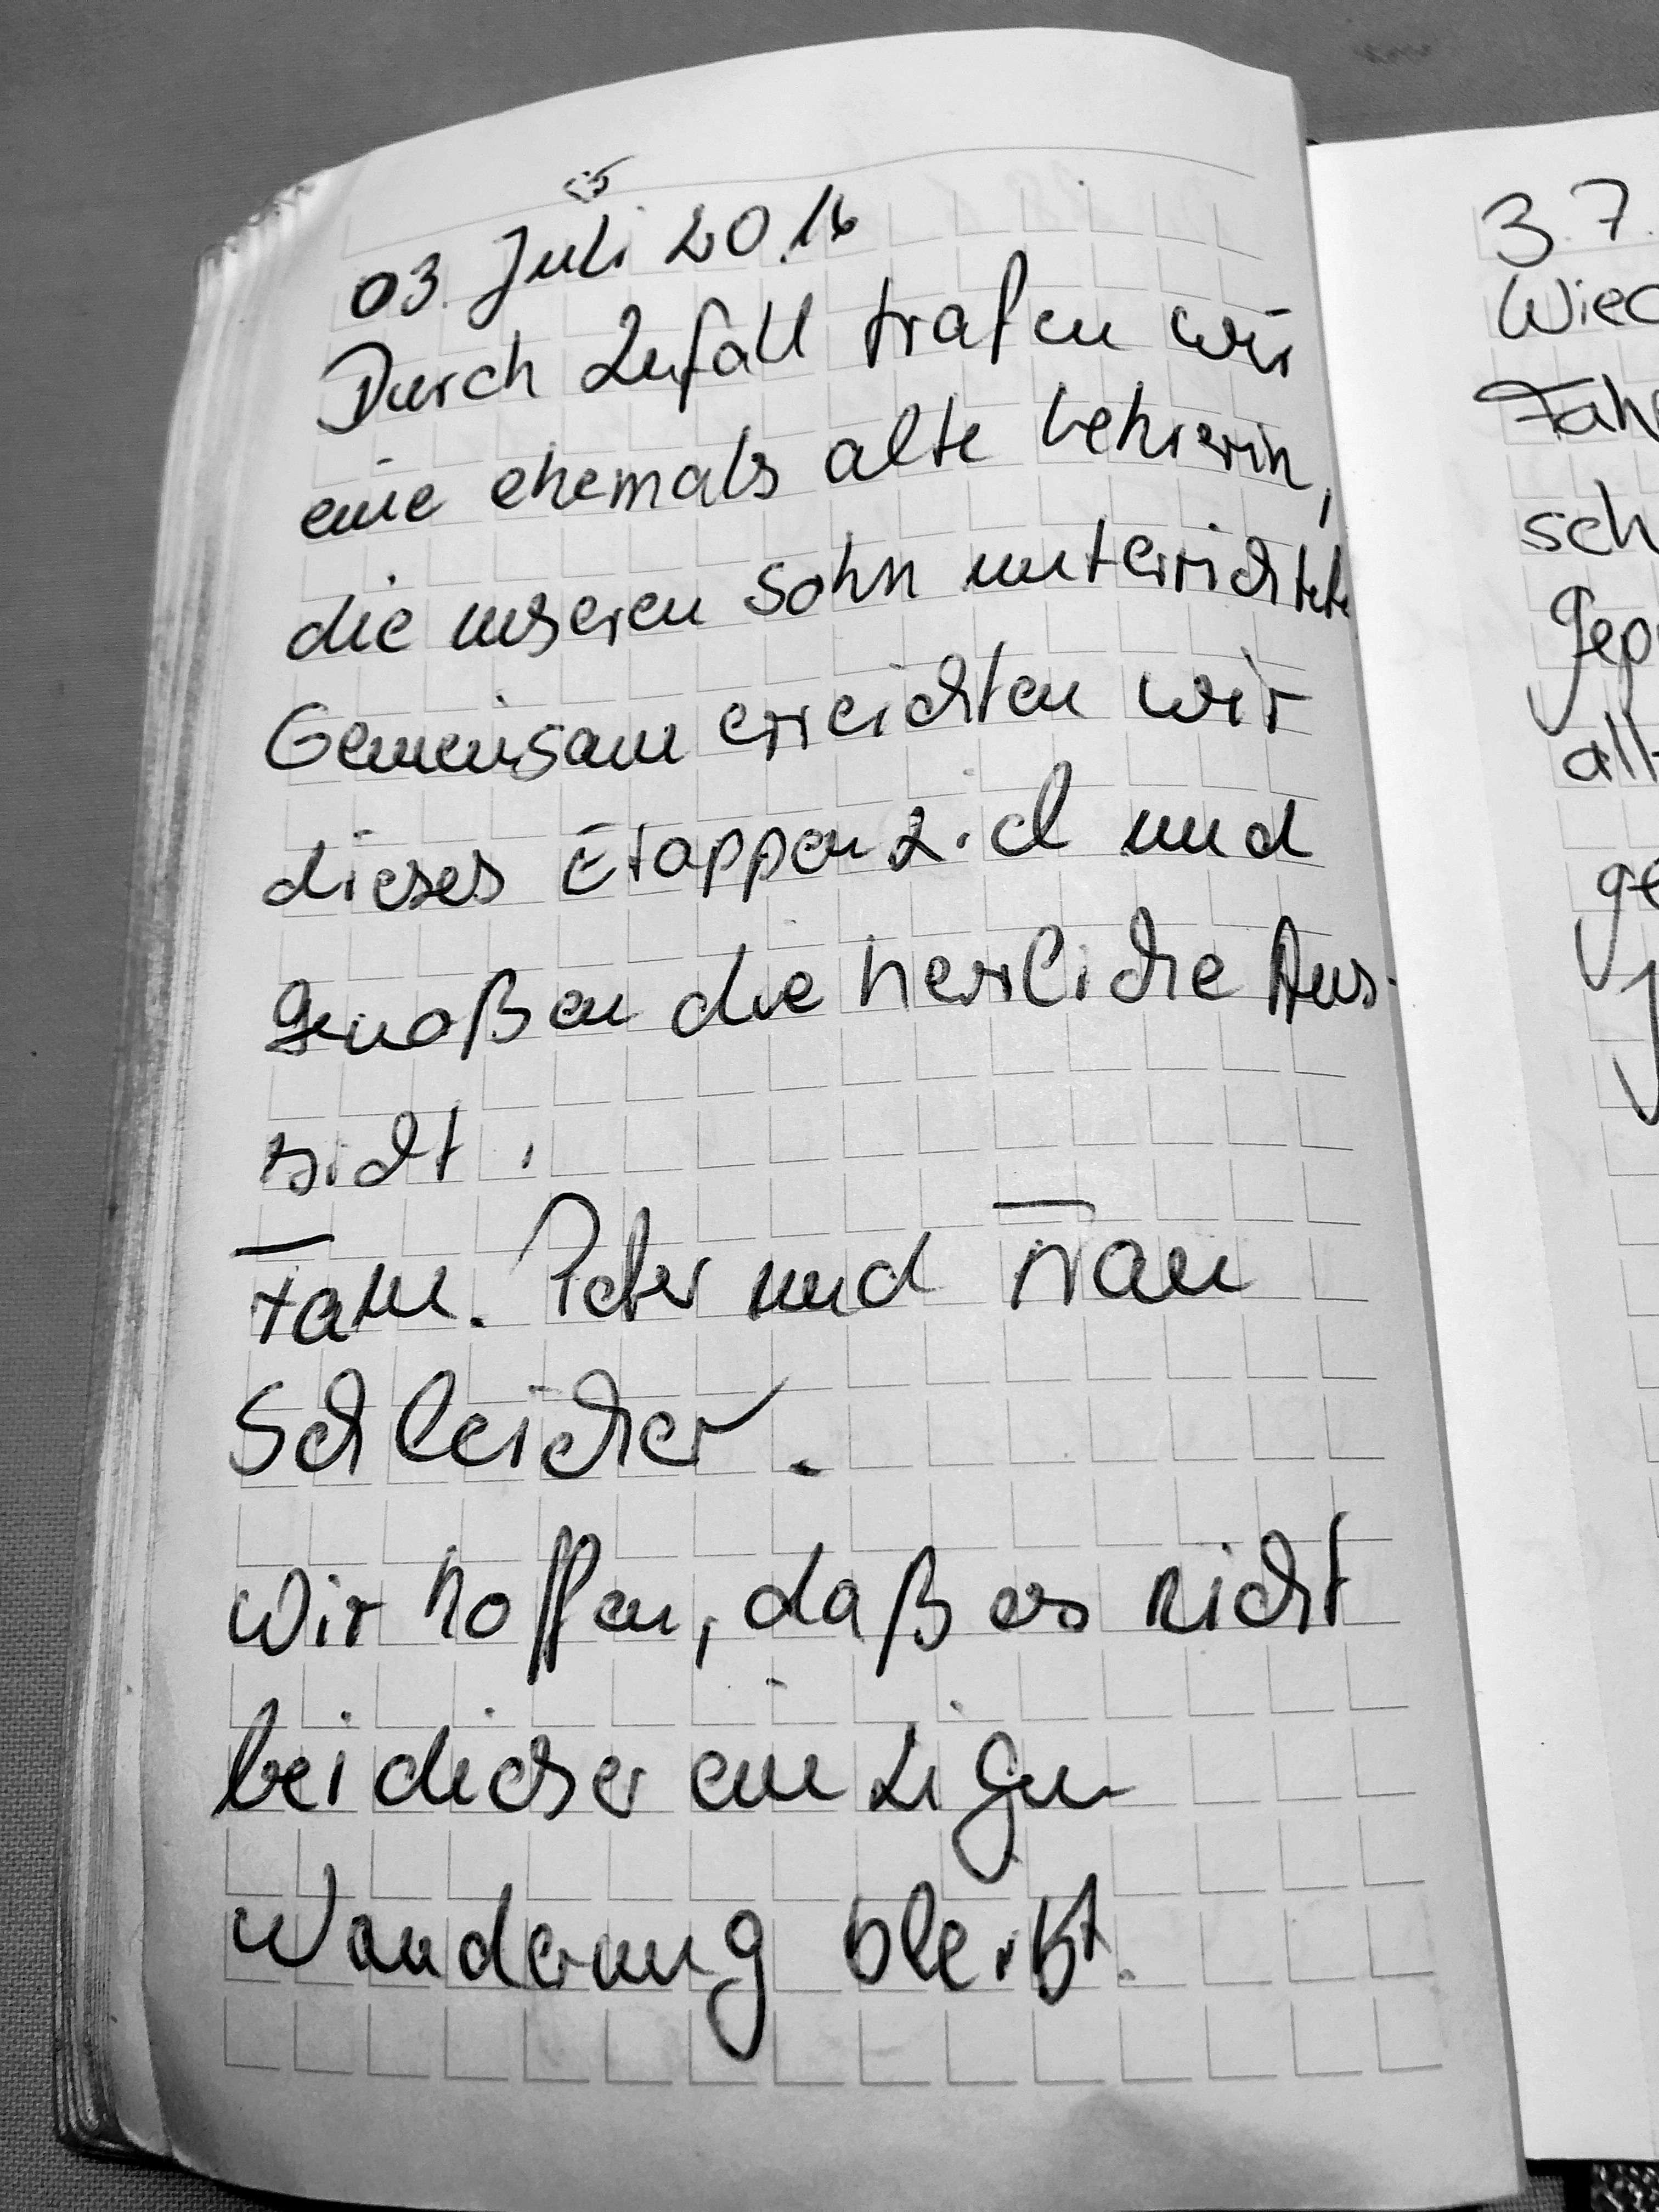 03. Juli 2016
Durch Zufall trafen wir
eine ehemals alte Lehrerin,
die unseren Sohn unterrichtete
Gemeinsam erreichten wir
dieses Etappenziel und
genoßen die herrliche Aus-
sicht.
Fam. Peter und Frau
Schleicher.
Wir hoffen, daß es nicht
bei dieser einzigen
Wanderung bleibt.
3.7.
Wied
Fah
sch
gep
all
ge